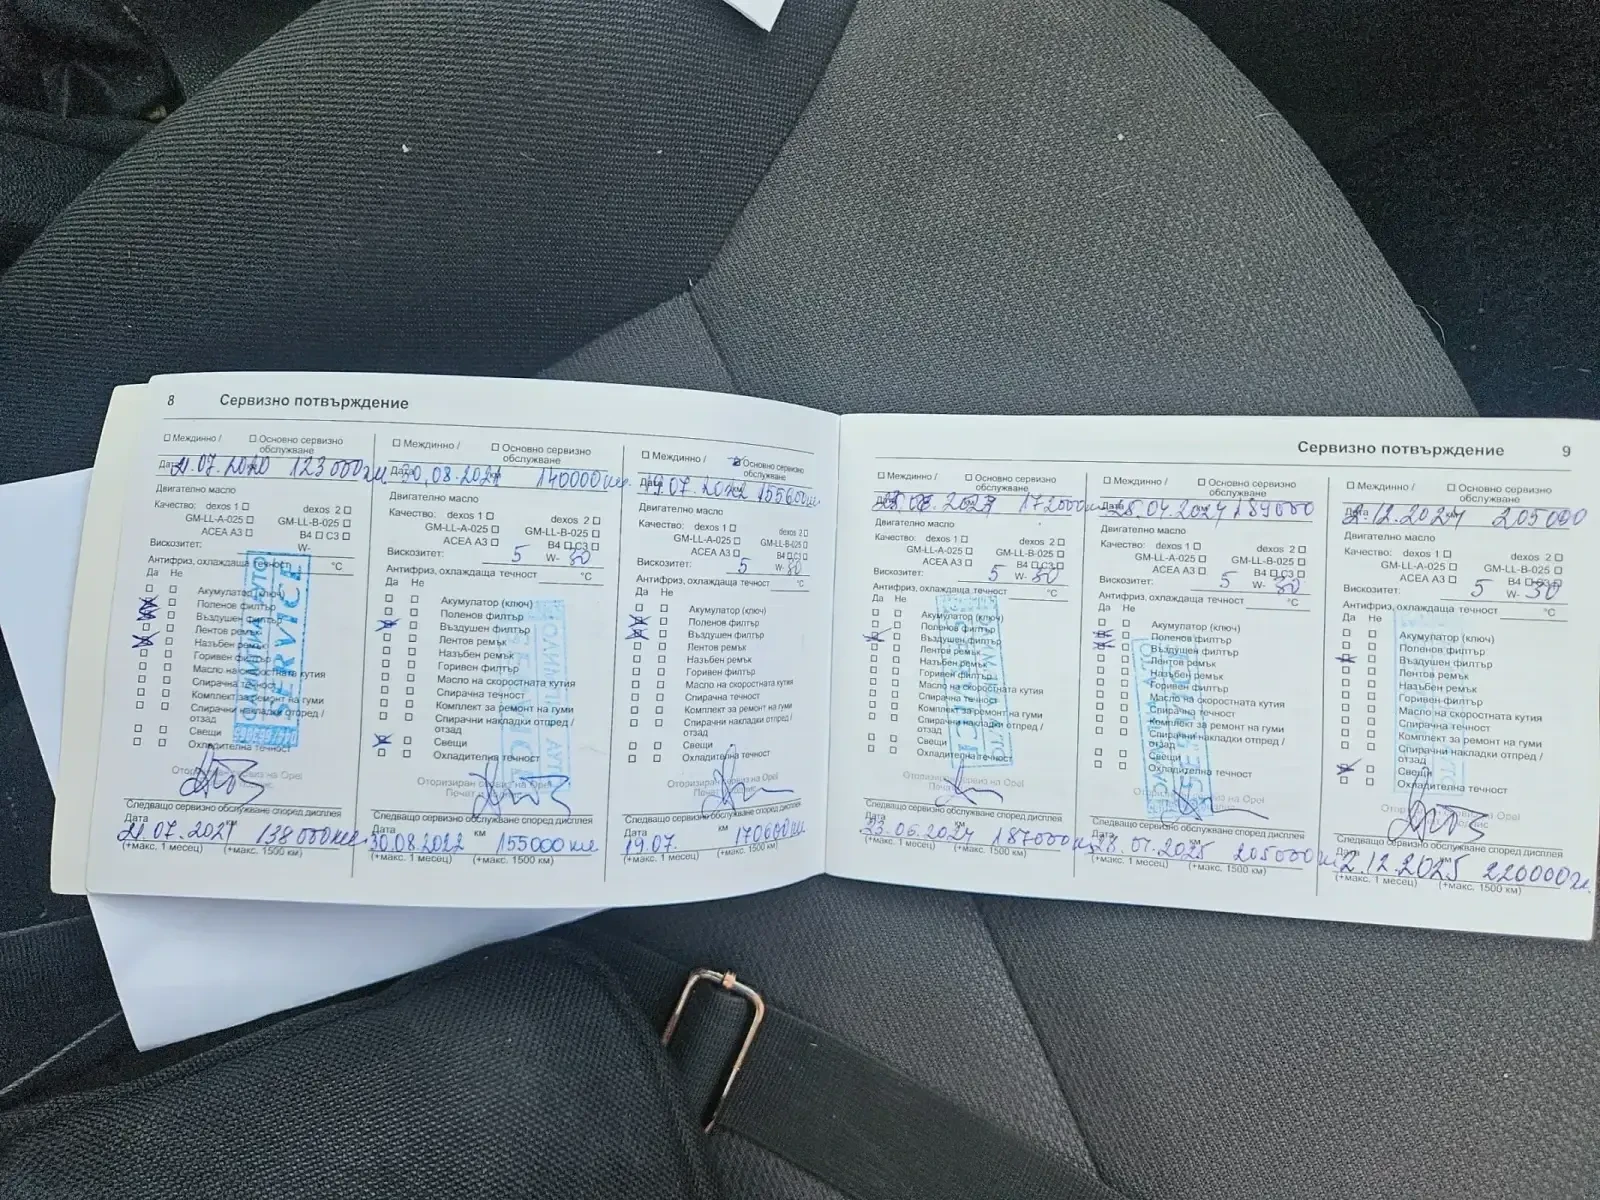 8 Сервизно потвърждение
Междинно / Основно сервизно обслужване
Дата 21.07.2020 123000км
Двигателно масло
Качество: dexos 1 dexos 2
GM-LL-A-025 GM-LL-B-025
ACEA A3 B4 C3
Вискозитет: W-
Антифриз, охлаждаща течност °C
Да Не
Акумулатор (ключ)
Поленов филтър
Въздушен филтър
Лентов ремък
Назъбен ремък
Горивен филтър
Масло на скоростната кутия
Спирачна течност
Комплект за ремонт на гуми
Спирачни накладки отпред / отзад
Свещи
Охладителна течност
SERVICE
Следващо сервизно обслужване според дисплея
Дата км
21.07.2021 138000км
(+макс. 1 месец) (+макс. 1500 км)
Междинно / Основно сервизно обслужване
Дата 30.08.2021 140000км
Двигателно масло
Качество: dexos 1 dexos 2
GM-LL-A-025 GM-LL-B-025
ACEA A3 B4 C3
Вискозитет: 5 W- 30
Антифриз, охлаждаща течност °C
Да Не
Акумулатор (ключ)
Поленов филтър
Въздушен филтър
Лентов ремък
Назъбен ремък
Горивен филтър
Масло на скоростната кутия
Спирачна течност
Комплект за ремонт на гуми
Спирачни накладки отпред /
отзад
Свещи
Охладителна течност
Оторизиран сервиз на Opel
Следващо сервизно обслужване според дисплея
Дата км
30.08.2022 155000км
(+макс. 1 месец) (+макс. 1500 км)
Междинно / Основно сервизно обслужване
Дата 19.07.2022 155600км
Двигателно масло
Качество: dexos 1 dexos 2
GM-LL-A-025 GM-LL-B-025
ACEA A3 B4 C3
Вискозитет: 5 W- 30
Антифриз, охлаждаща течност °C
Да Не
Акумулатор (ключ)
Поленов филтър
Въздушен филтър
Лентов ремък
Назъбен ремък
Горивен филтър
Масло на скоростната кутия
Спирачна течност
Комплект за ремонт на гуми
Спирачни накладки отпред /
отзад
Свещи
Охладителна течност
Оторизиран сервиз на Opel
Следващо сервизно обслужване според дисплея
Дата км
19.07. 170600км
(+макс. 1 месец) (+макс. 1500 км)
Сервизно потвърждение 9
Междинно / Основно сервизно обслужване
Дата 2023 172000км
Двигателно масло
Качество: dexos 1 dexos 2
GM-LL-A-025 GM-LL-B-025
ACEA A3 B4 C3
Вискозитет: 5 W- 30
Антифриз, охлаждаща течност °C
Да Не
Акумулатор (ключ)
Поленов филтър
Въздушен филтър
Лентов ремък
Назъбен ремък
Горивен филтър
Масло на скоростната кутия
Спирачна течност
Комплект за ремонт на гуми
Спирачни накладки отпред /
отзад
Свещи
Охладителна течност
Следващо сервизно обслужване според дисплея
Дата км
23.06.2024 187000км
(+макс. 1 месец) (+макс. 1500 км)
Междинно / Основно сервизно обслужване
Дата 04.2024 189000
Двигателно масло
Качество: dexos 1 dexos 2
GM-LL-A-025 GM-LL-B-025
ACEA A3 B4 C3
Вискозитет: 5 W- 30
Антифриз, охлаждаща течност °C
Да Не
Акумулатор (ключ)
Поленов филтър
Въздушен филтър
Лентов ремък
Назъбен ремък
Горивен филтър
Масло на скоростната кутия
Спирачна течност
Комплект за ремонт на гуми
Спирачни накладки отпред /
отзад
Свещи
Охладителна течност
SERVICE
Следващо сервизно обслужване според дисплея
Дата км
2025 205000км
(+макс. 1 месец) (+макс. 1500 км)
Междинно / Основно сервизно обслужване
Дата 2.12.2024 205000
Двигателно масло
Качество: dexos 1 dexos 2
GM-LL-A-025 GM-LL-B-025
ACEA A3 B4 C3
Вискозитет: 5 W- 30
Антифриз, охлаждаща течност °C
Да Не
Акумулатор (ключ)
Поленов филтър
Въздушен филтър
Лентов ремък
Назъбен ремък
Горивен филтър
Масло на скоростната кутия
Спирачна течност
Комплект за ремонт на гуми
Спирачни накладки отпред /
отзад
Свещи
Охладителна течност
Следващо сервизно обслужване според дисплея
Дата км
2.12.2025 220000км
(+макс. 1 месец) (+макс. 1500 км)